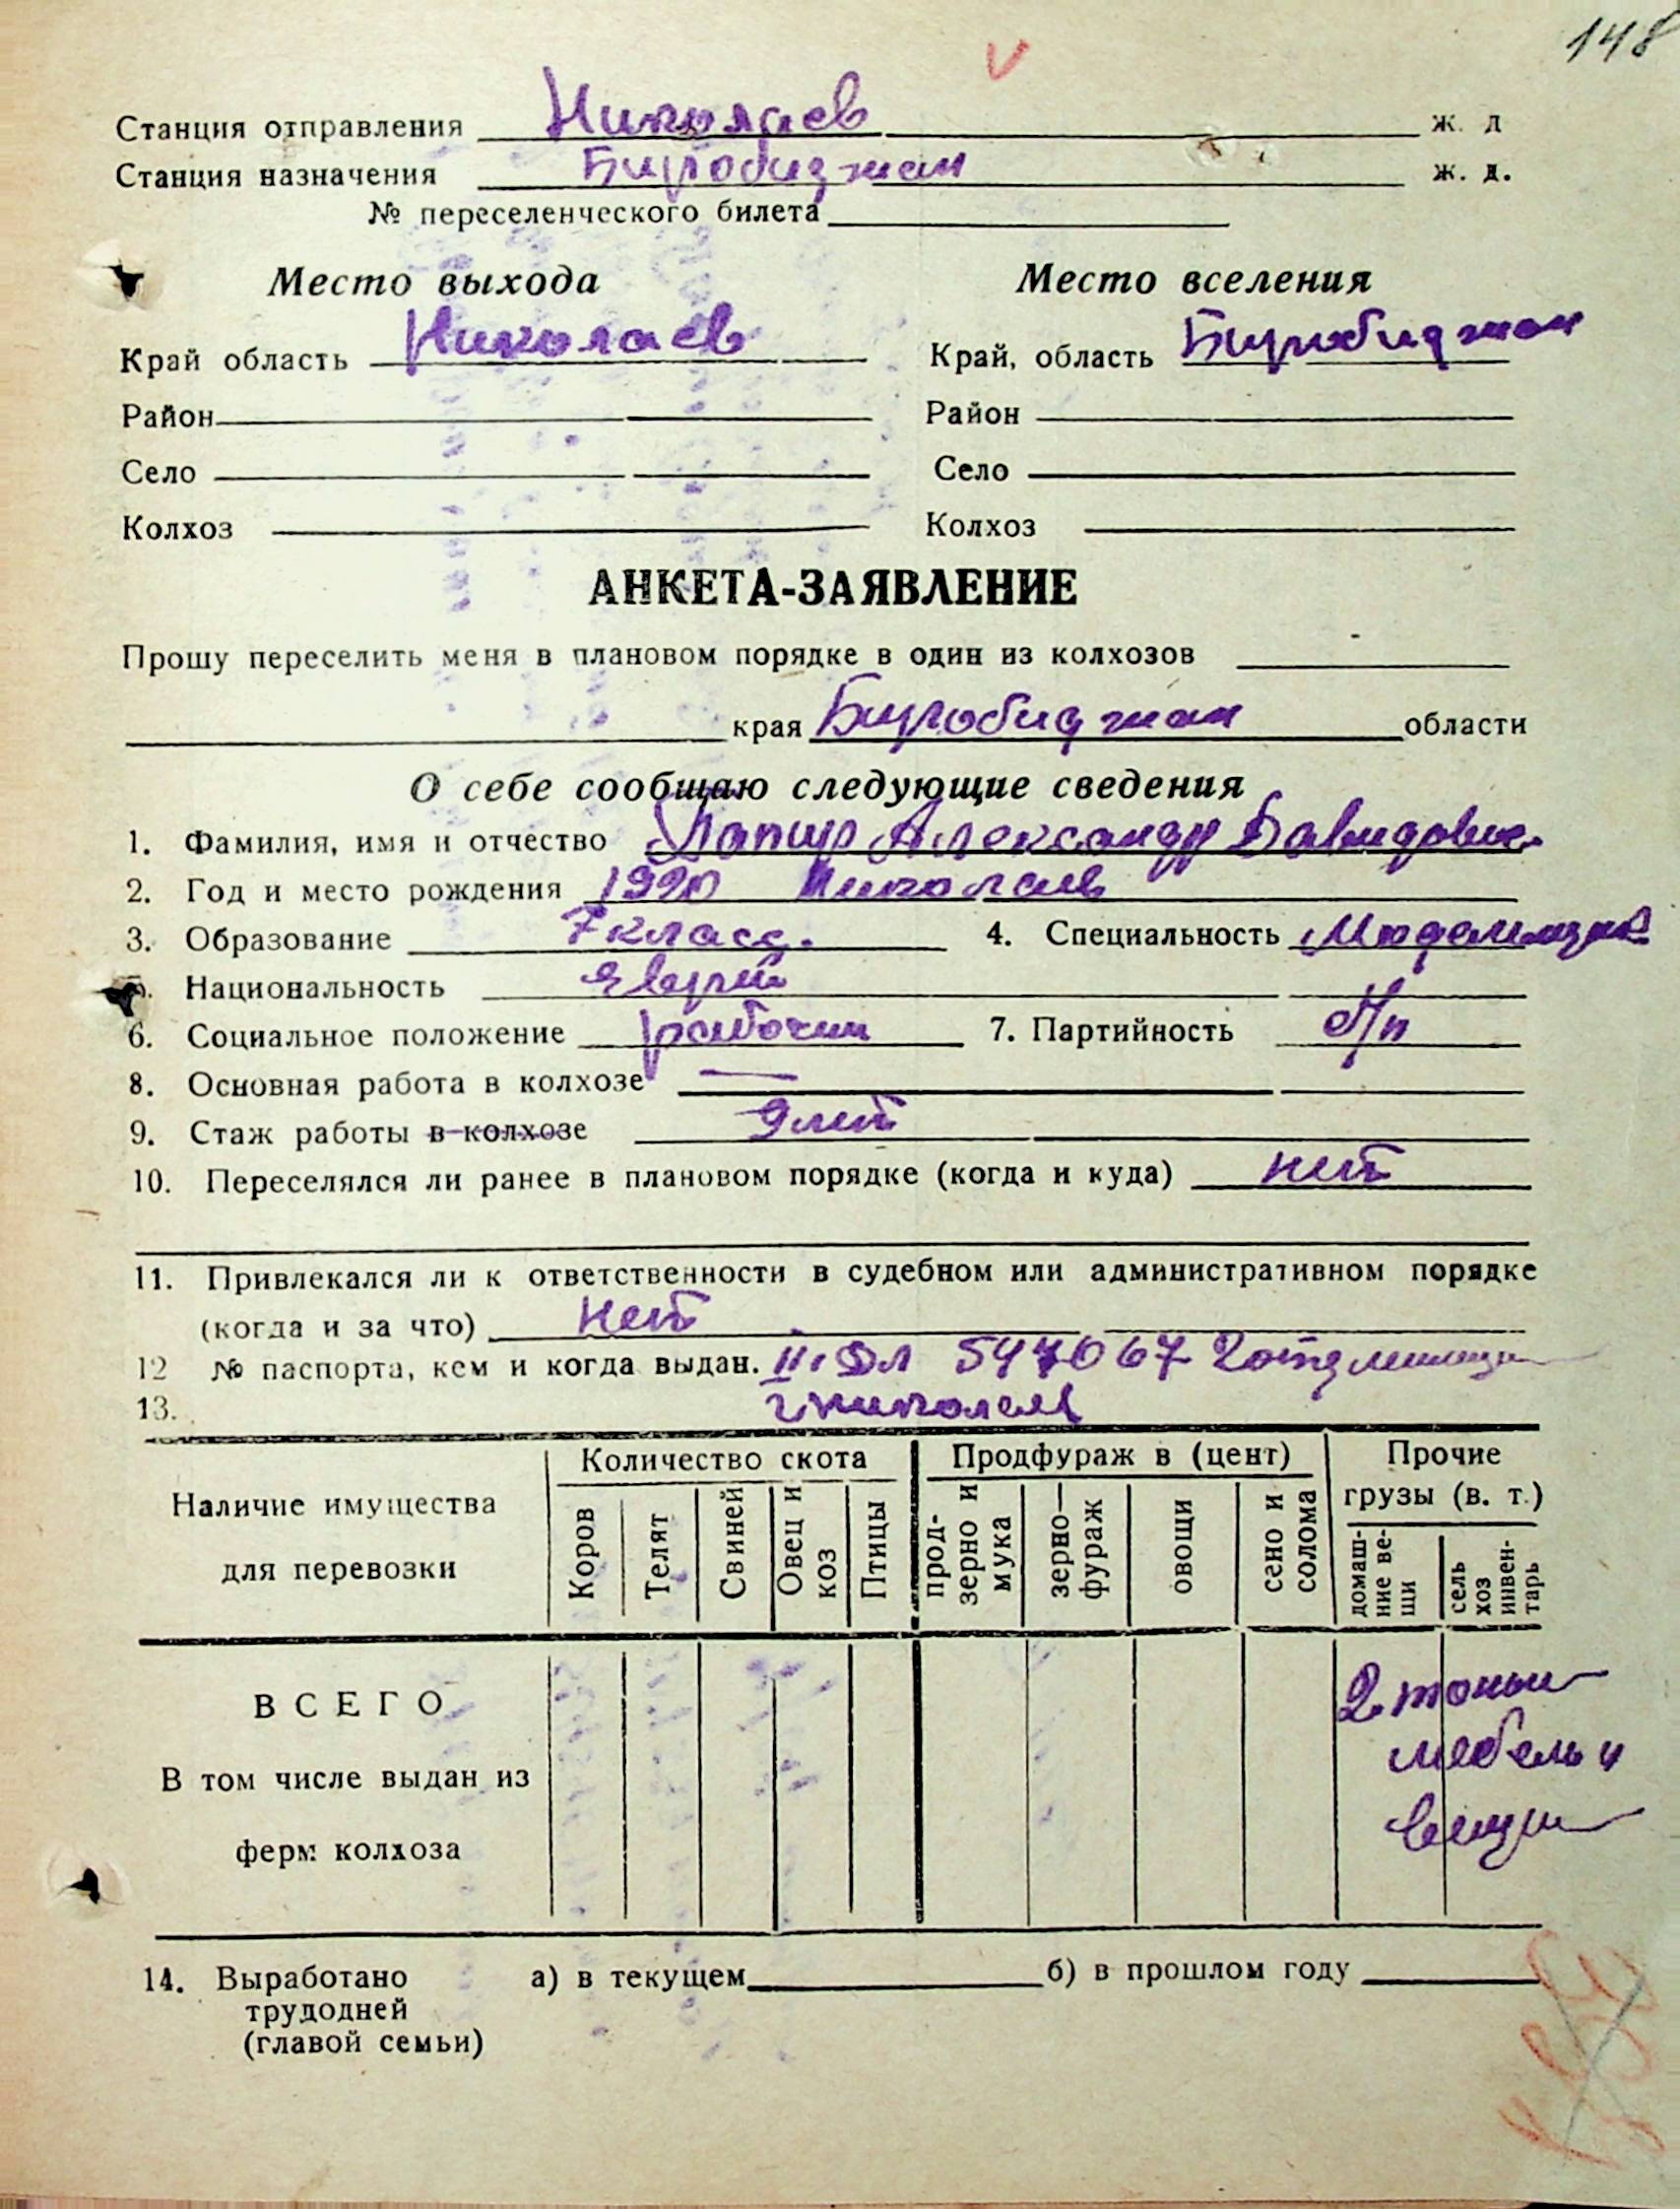 148
Станция отправления Николаев ж. д
Станция назначения Биробиджан ж. д.
№ переселенческого билета
Место выхода Место вселения
Край область Николаев Край, область Биробиджан
Район Район
Село Село
Колхоз Колхоз
АНКЕТА-ЗАЯВЛЕНИЕ
Прошу переселить меня в плановом порядке в один из колхозов
края Биробиджан области
О себе сообщаю следующие сведения
1. Фамилия, имя и отчество Папир Александр Давидович
2. Год и место рождения 1920 Николаев
3. Образование 7 класс. 4. Специальность Модельщик
5. Национальность Еврей
6. Социальное положение рабочий 7. Партийность б/п
8. Основная работа в колхозе —
9. Стаж работы в колхозе 9 лет
10. Переселялся ли ранее в плановом порядке (когда и куда) нет
11. Привлекался ли к ответственности в судебном или административном порядке
(когда и за что) нет
12 № паспорта, кем и когда выдан. 547067 2 отд милиции
13. г Николаев
Наличие имущества для перевозки Количество скота Продфураж в (цент) Прочие грузы (в. т.)
Коров Телят Свиней Овец и коз Птицы прод-зерно и мука зерно—фураж овощи сено и солома домаш-ние ве-щи сель хоз инвен-тарь
ВСЕГО 2 тонны
В том числе выдан из мебель и
ферм колхоза вещи
14. Выработано а) в текущем б) в прошлом году
трудодней
(главой семьи)